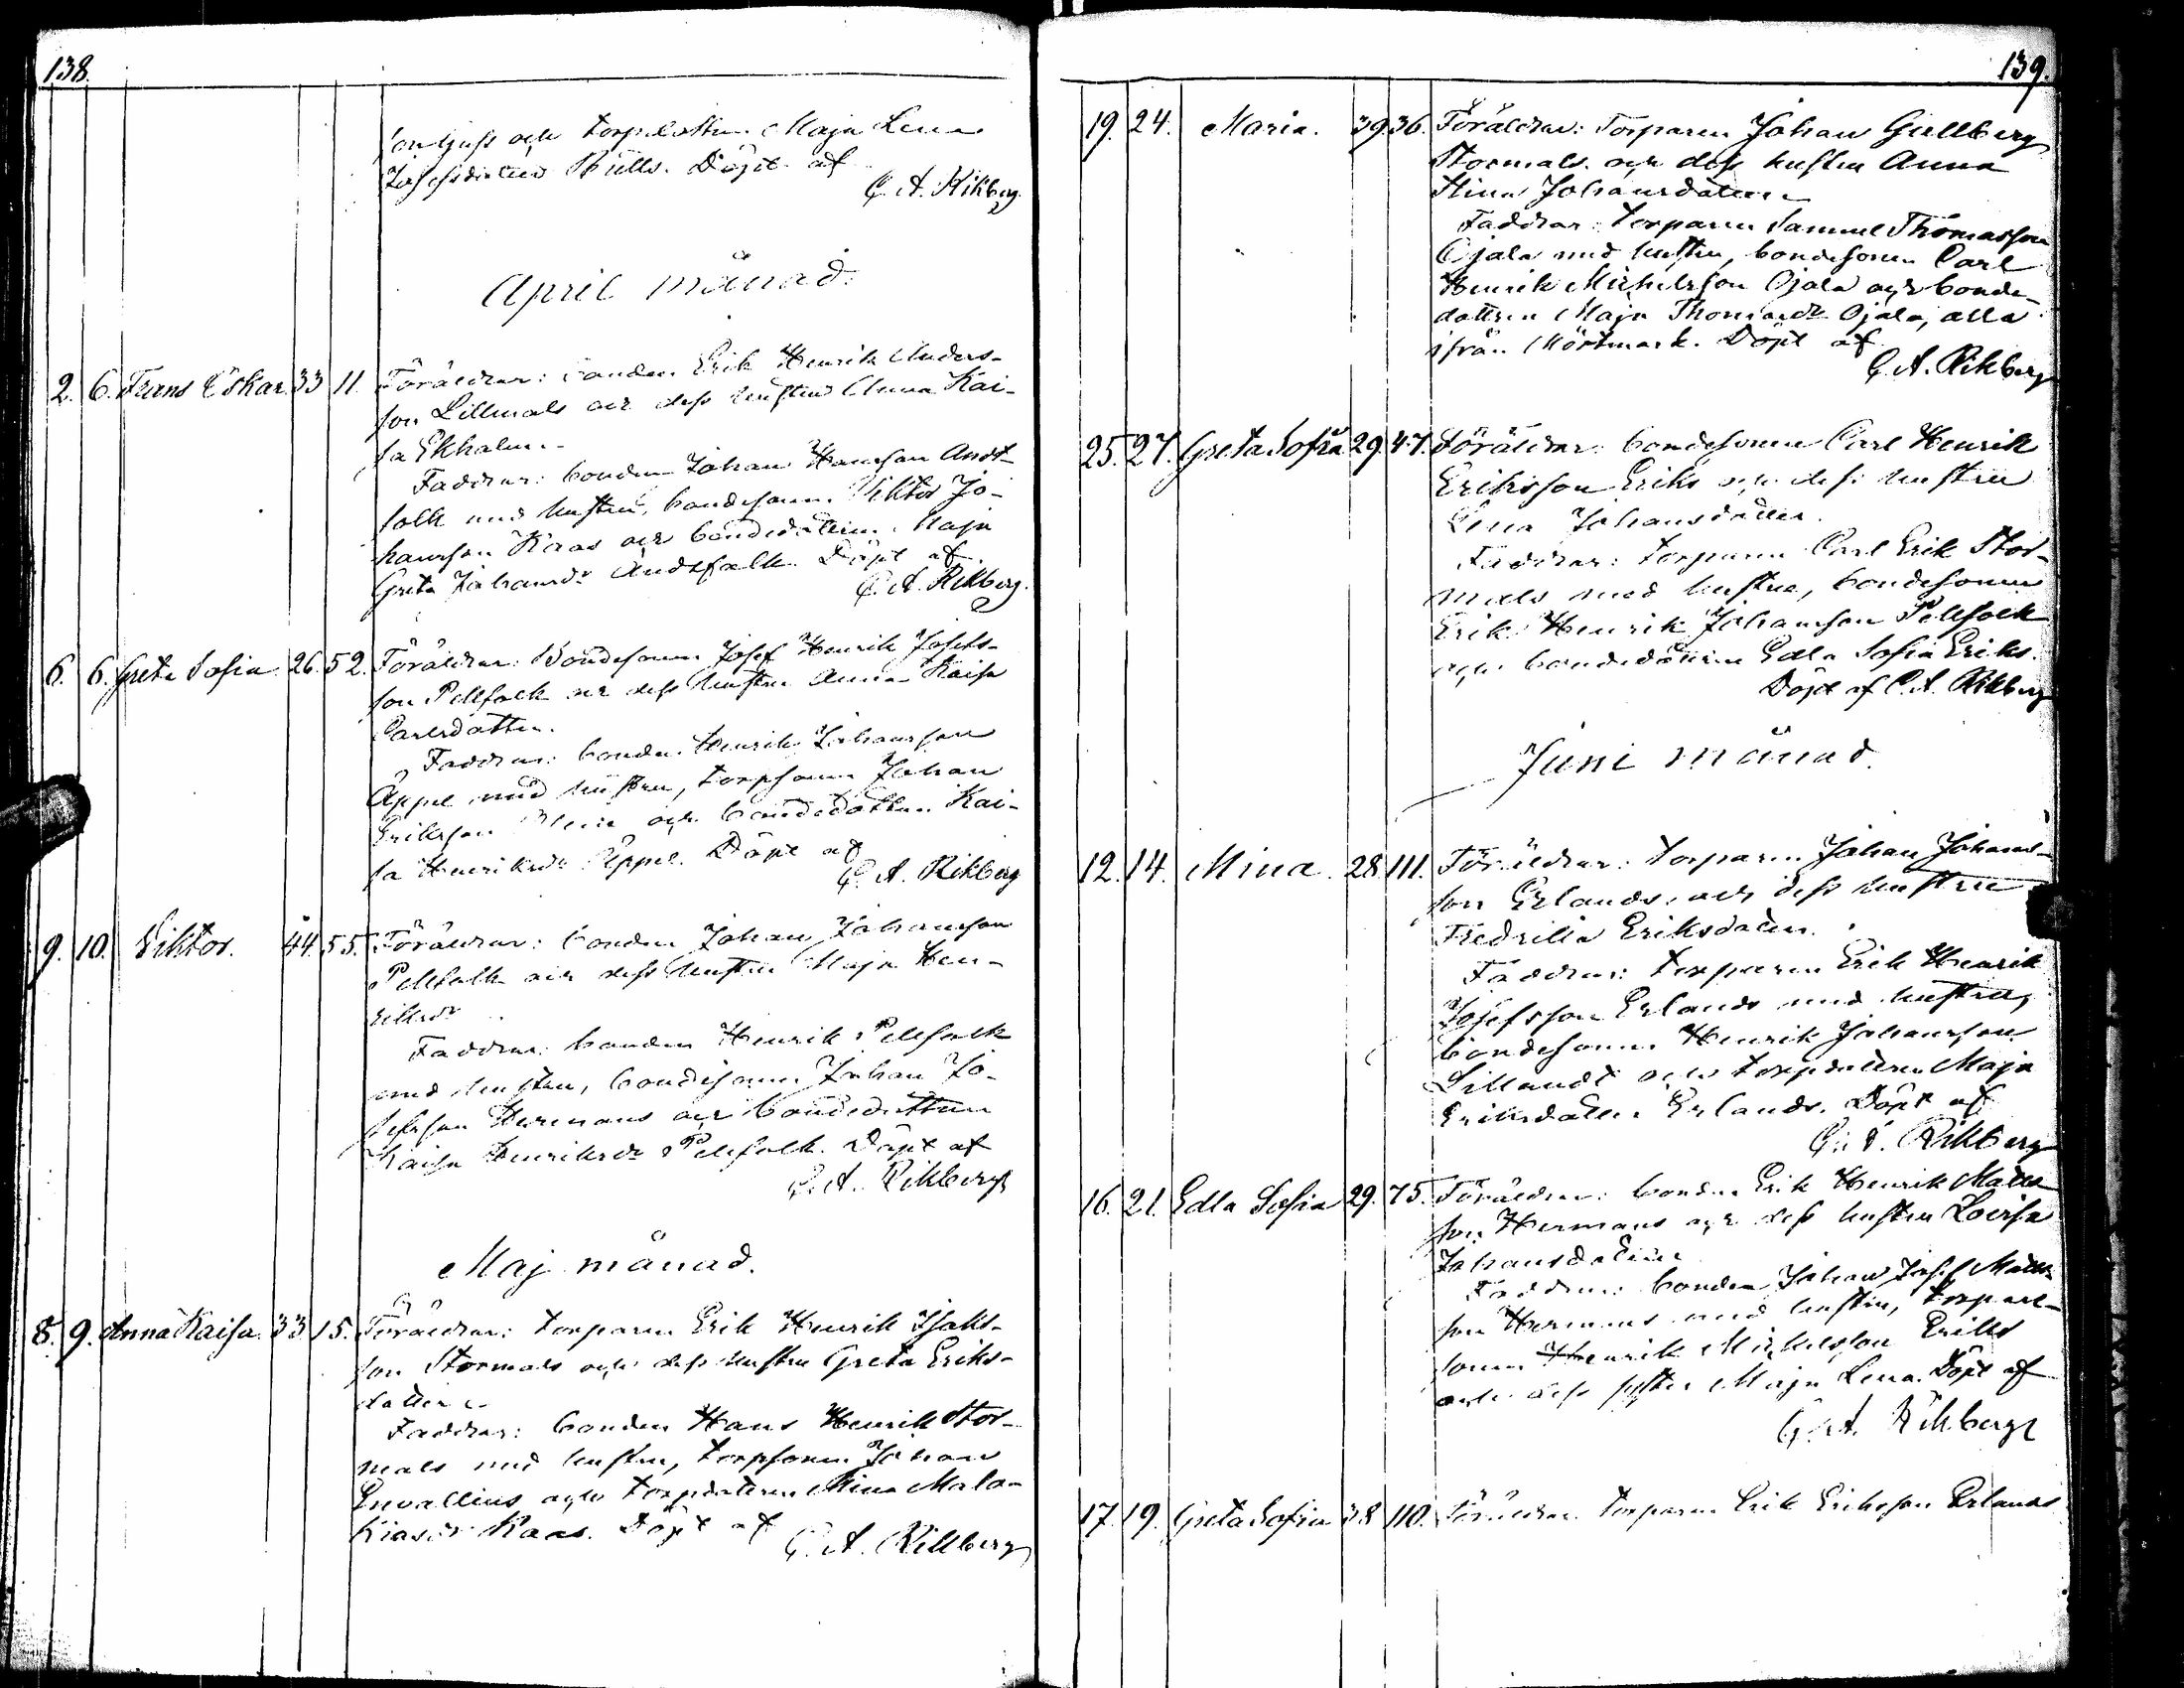 138.
son Ljuss och torpdottren Maja Lena
Josefsdotter Bulls. Döpt af
C. A. Rikberg.
April månad.
2. 6. Frans Oskar. 33 11. Föräldrar: bonden Erik Henrik Anders-
son Lillmals och dess hustru Anna Kai-
sa Ekholm.
Faddrar: bonden Johan Hansson Andt-
folk med hustru, bondesonen Viktor Jo-
hansson Kaas och bondedottren Maja
Greta Johansdr Andtfolk. Döpt af
C. A. Rikberg.
6. 6. Greta Sofia 26. 52. Föräldrar: Bondesonen Josef Henrik Josefs-
son Pellfolk och dess hustru Anna Kaisa
Carlsdotter.
Faddrar: bonden Henrik Johansson
Äppel med hustru, torpsonen Johan
Eriksson och bondedottren Kai-
sa Henriksdr Äppel. Döpt af
C. A. Rikberg
9. 10. Viktor. 44. 55. Föräldrar: bonden Johan Johansson
Pellfolk och dess hustru Maja Hen-
riksdr
Faddrar: bonden Henrik Pellfolk
med hustru, bondesonen Johan Jo-
sefsson Hermans och bondedottren
Kaisa Henriksdr Pellfolk. Döpt af
C. A. Rikberg
Maj månad.
8. 9. Anna Kaisa. 33 15. Föräldrar: torparen Erik Henrik Isaks-
son Stormals och dess hustru Greta Eriks-
dotter
Faddrar: bonden Hans Henrik Stor-
mals med hustru, torpsonen Johan
Envallius och torpdottren Mina Mala-
kiasdr Kaas. Döpt af
C. A. Rikberg
139.
19. 24. Maria. 39 36. Föräldrar: Torparen Johan Gullberg
Stormals och dess hustru Anna
Stina Johansdotter
Faddrar: torparen Samuel Thomasson
Ojala med hustru, bondesonen Carl
Henrik Michelsson Ojala och bonde-
dottren Maja Thomasdr Ojala, alla
ifrån Mörtmark. Döpt af
C. A. Rikberg
25. 27. Greta Sofia 29. 47. Föräldrar: bondesonen Carl Henrik
Eriksson Eriks och dess hustru
Lena Johansdotter.
Faddrar: torparen Carl Erik Stor-
mals med hustru, bondesonen
Erik Henrik Johansson Pellfolk
och bondedottren Edla Sofia Eriks.
Döpt af C. A. Rikberg
Juni månad.
12. 14. Mina. 28. 111. Föräldrar: torparen Johan Johans-
son Erlands och dess hustru
Fredrika Eriksdotter.
Faddrar: torparen Erik Henrik
Josefsson Erlands med hustru,
bondesonen Henrik Johansson
Sillandt och torpdottren Maja
Eriksdotter Erlands. Döpt af
C. A. Rikberg
16. 21. Edla Sofia 29. 75. Föräldrar: bonden Erik Henrik Matts-
son Hermans och dess hustru Lovisa
Johansdotter
Faddrar: bonden Johan Josef Matts-
son Hermans med hustru, torpare-
sonen Henrik Michelsson Eriks
och dess syster Maja Lena. Döpt af
C. A. Rikberg
17. 19. Greta Sofia 38 110. Föräldrar: torparen Erik Eriksson Erlands